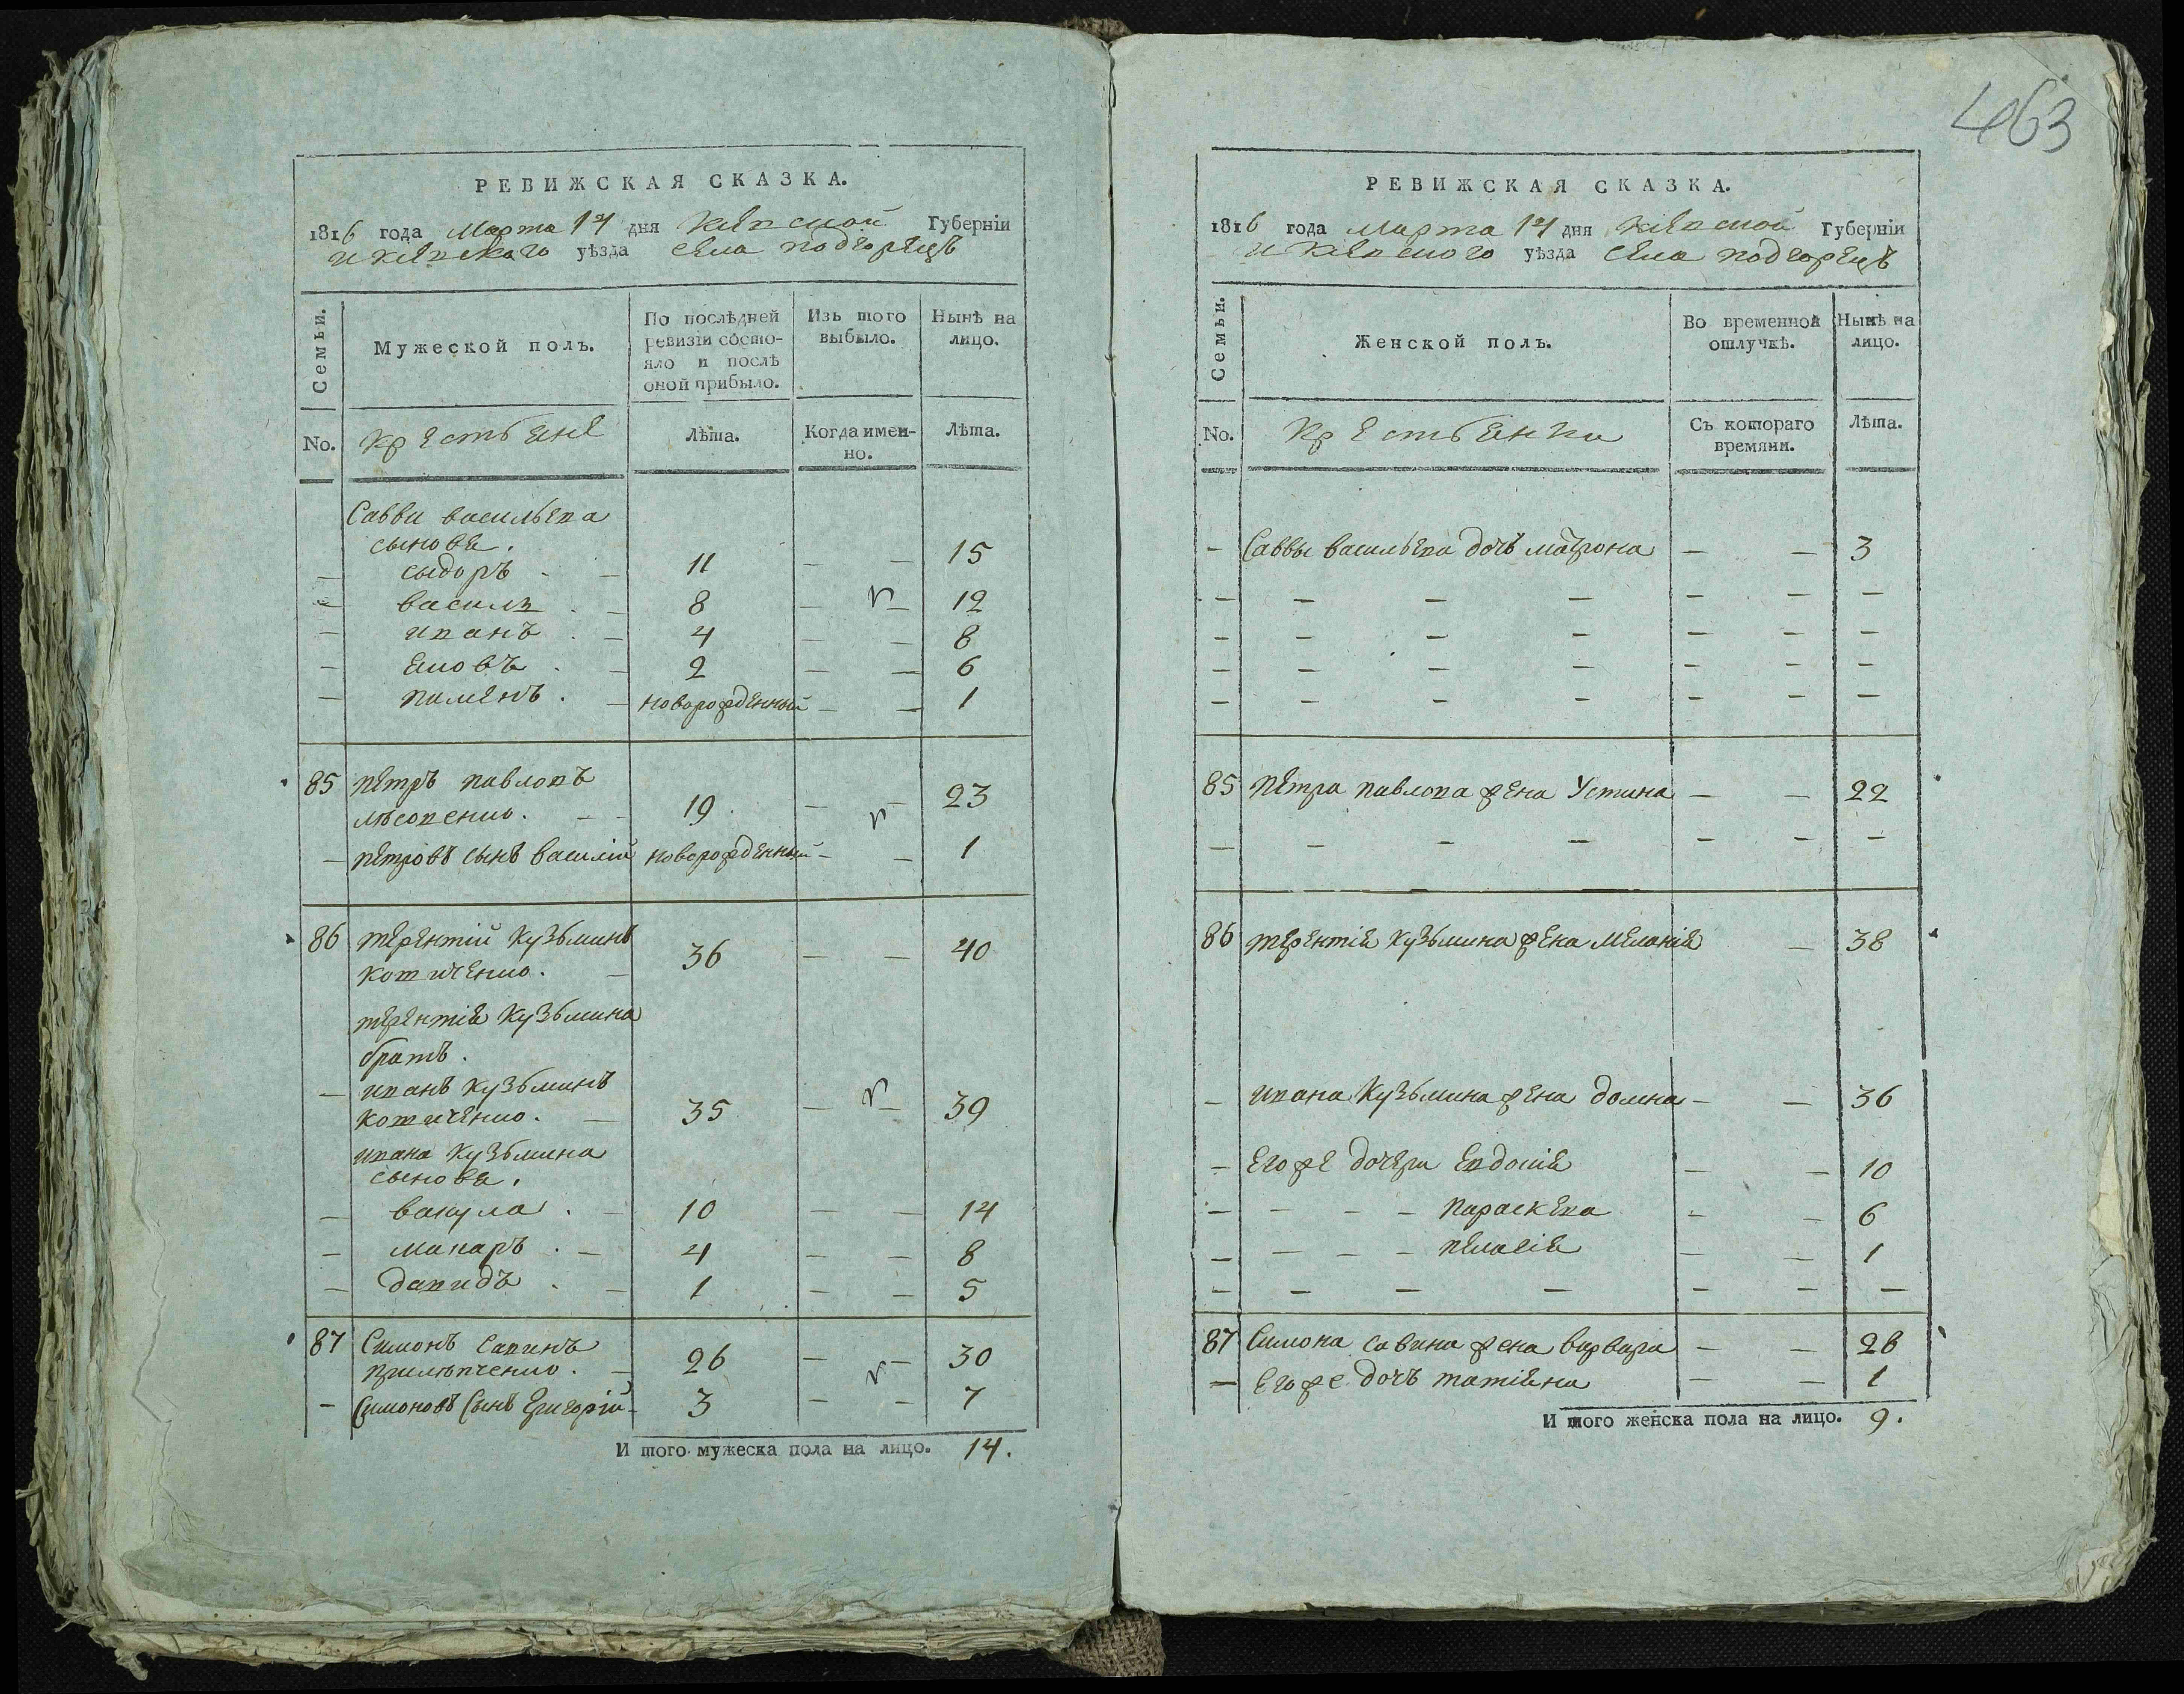 463
РЕВИЖСКАЯ СКАЗКА.
1816 года Марта 14 дня Кіевской Губерніи
и Кіевскаго уѣзда села Подгорецъ
Семьи.
Мужеской полъ.
По послѣдней ревизіи состояло и послѣ оной прибыло.
Изъ того выбыло.
Нынѣ на лицо.
No.
Крестьяне
Лѣта.
Когда именно.
Лѣта.
Саввы васильева
сыновья.
— сыдоръ . — 11 — — 15
— василь . — 8 — — 12
— иванъ . — 4 — — 8
— яковъ . — 2 — — 6
— пименъ . — новорожденный — — 1
85 петръ павловъ
. — — 19 — — 23
— петровъ сынъ василій новорожденный — — 1
86 терентій Кузьминъ
котиченко. — 36 — — 40
терентія Кузьмина
братъ.
— иванъ Кузьминъ
котиченко. — 35 — — 39
ивана Кузьмина
сыновья.
— вакула . — 10 — — 14
— макаръ . — 4 — — 8
— давидъ . — 1 — — 5
87 Симонъ Савинъ
. — 26 — — 30
— Симоновъ Сынъ Григорій — 3 — — 7
И того мужеска пола на лицо. 14.
РЕВИЖСКАЯ СКАЗКА.
1816 года Марта 14 дня Кіевской Губерніи
и Кіевского уѣзда села Подгорецъ
Семьи.
Женской полъ.
Во временной отлучкѣ.
Нынѣ на лицо.
No.
Крестьянки
Съ котораго времяни.
Лѣта.
— Саввы васильева дочь матрона — — 3
— — — — — — —
— — — — — — —
— — — — — — —
— — — — — — —
85 Петра павлова жена Устина — — 22
— — — — — — —
86 терентія Кузьмина жена Меланія — 38
— ивана Кузьмина жена домна — — 36
— Его же дочери Евдокія — — 10
— — — — Параскева — — 6
— — — — пелагія — — 1
— — — — — — —
87 Симона савина жена варвара — — 28
— Его же дочь татіяна — — 1
И того женска пола на лицо. 9.